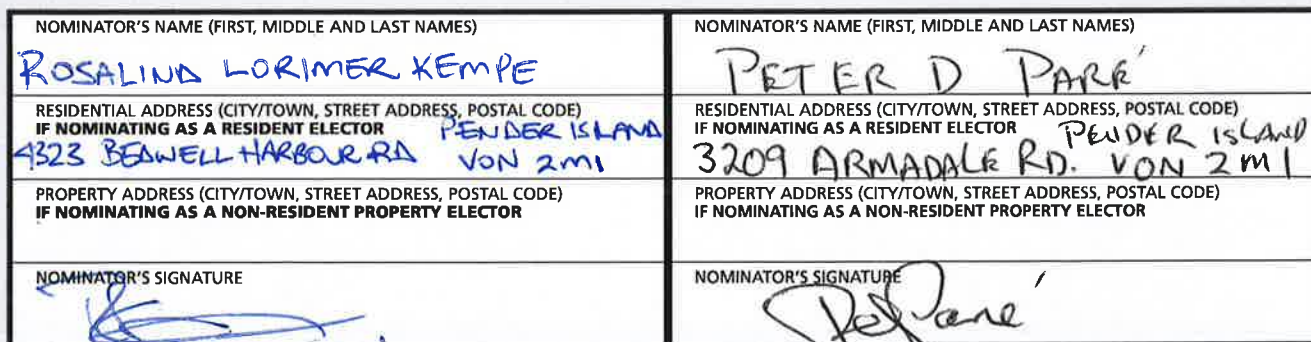 NOMINATOR'S NAME (FIRST, MIDDLE AND LAST NAMES)
ROSALIND LORIMER KEMPE
RESIDENTIAL ADDRESS (CITY/TOWN, STREET ADDRESS, POSTAL CODE)
IF NOMINATING AS A RESIDENT ELECTOR PENDER ISLAND
4323 BEDWELL HARBOUR RD V0N 2M1
PROPERTY ADDRESS (CITY/TOWN, STREET ADDRESS, POSTAL CODE)
IF NOMINATING AS A NON-RESIDENT PROPERTY ELECTOR
NOMINATOR'S SIGNATURE
NOMINATOR'S NAME (FIRST, MIDDLE AND LAST NAMES)
PETER D PARÉ
RESIDENTIAL ADDRESS (CITY/TOWN, STREET ADDRESS, POSTAL CODE)
IF NOMINATING AS A RESIDENT ELECTOR PENDER ISLAND
3209 ARMADALE RD. V0N 2M1
PROPERTY ADDRESS (CITY/TOWN, STREET ADDRESS, POSTAL CODE)
IF NOMINATING AS A NON-RESIDENT PROPERTY ELECTOR
NOMINATOR'S SIGNATURE